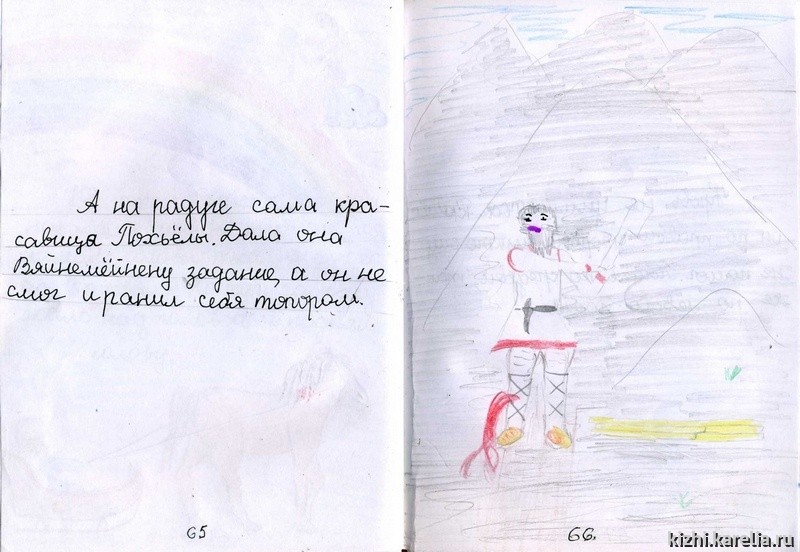 А на радуге сама кра-
савица Похъёлы. Дала она
Вяйнемёйнену задание, а он не
смог и ранил себя топором.
65
66.
kizhi.karelia.ru